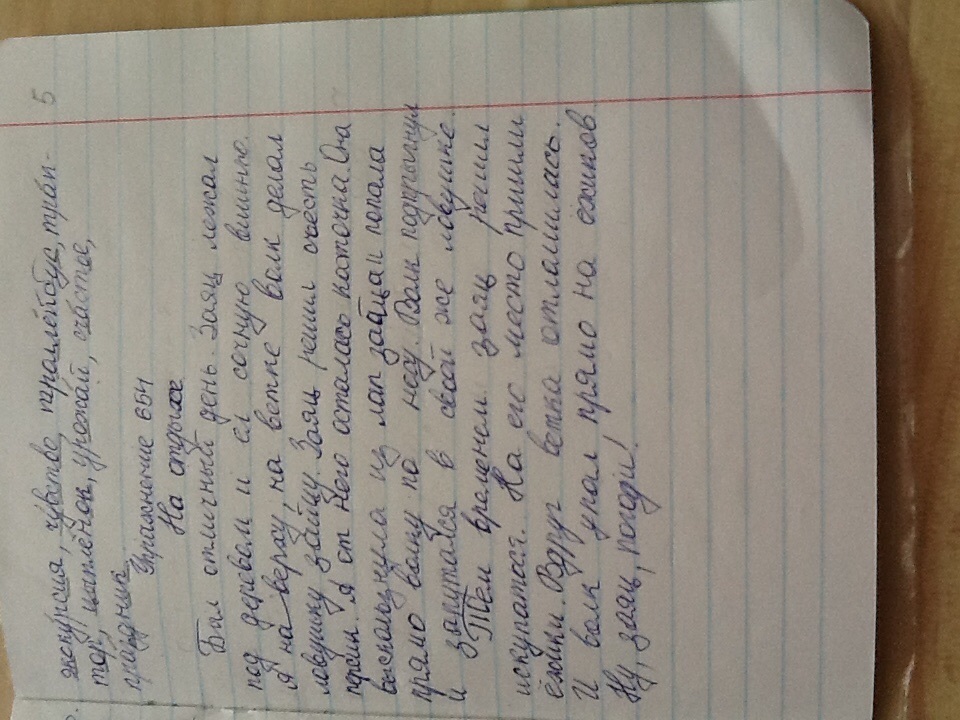 экскурсия, чувство тралейбус, трак-
тор, цыплёнок, урожай, счастье,
праздник
Упражнение 651
На отдыхе
Был отличный день. Заяц лежал
под деревом и ел сочную вишню.
А на верху, на ветке волк делал
ловушку зайцу. Заяц решил съесть
персик. А от него осталась косточка. Она
выскользнула из лап зайца и попала
прямо волку по носу. Волк подпрыгнул
и запутался в своей же ловушке.
Тем временем заяц решил
искупатся. На его место пришли
ёжики. Вдруг ветка отламилась.
И волк упал прямо на ёжиков
Ну, заяц, погоди!
5